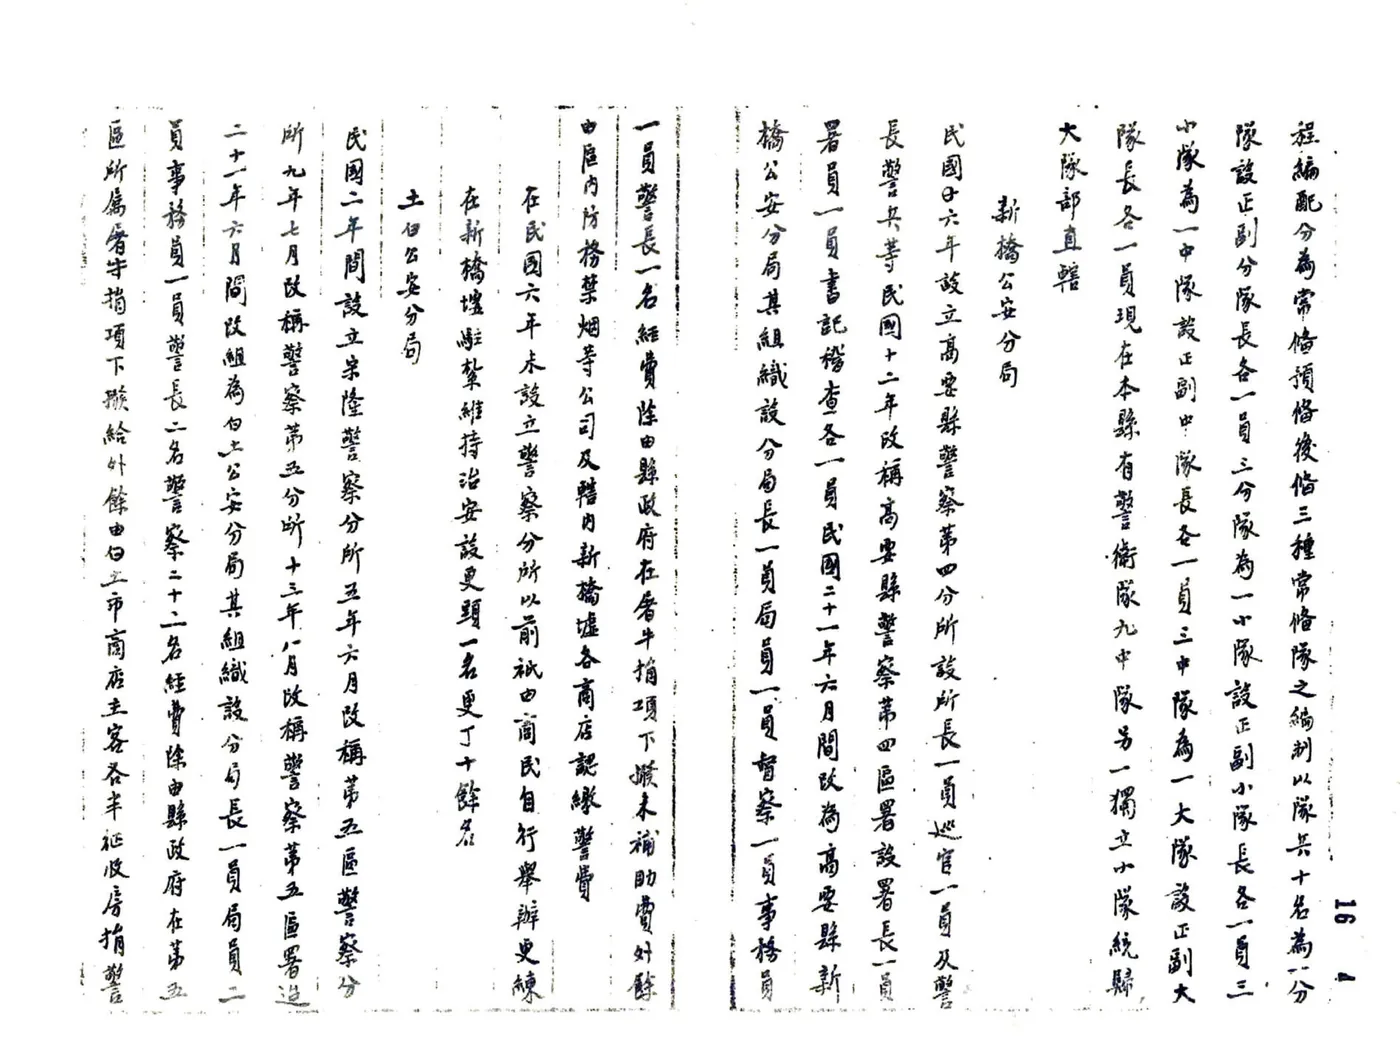 程編配分為常備預備後備三種常備隊之編制以隊兵十名為一分
隊設正副分隊長各一員三分隊為一小隊設正副小隊長各一員三
小隊為一中隊設正副中隊長各一員三中隊為一大隊設正副大
隊長各一員現在本縣有警衛隊九中隊另一獨立小隊統歸
大隊部直轄
新橋公安分局
民國六年設立高要縣警察第四分所設所長一員巡官一員及警
長警兵等民國十二年改稱高要縣警察第四區署設署長一員
署員一員書記稽查各一員民國二十一年六月間改為高要縣新
橋公安分局其組織設分局長一員局員一員督察一員事務員
一員警長一名經費除由縣政府在屠牛捐項下撥未補助費外餘
由區內防務禁烟等公司及轄內新橋墟各商店認繳警費
在民國六年未設立警察分所以前祇由商民自行舉辦更練
在新橋墟駐紮維持治安設更頭一名更丁十餘名
土白公安分局
民國二年間設立宋隆警察分所五年六月改稱第五區警察分
所九年七月改稱警察第五分所十三年八月改稱警察第五區署迨
二十一年六月間改組為白土公安分局其組織設分局長一員局員二
員事務員一員警長二名警察二十二名經費除由縣政府在第五
區所屬屠牛捐項下撥給外餘由白土市商店主客各半征收房捐警
16 4